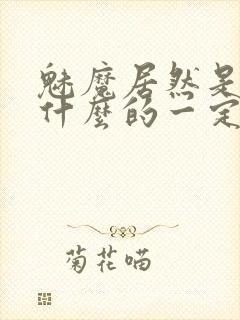 魅魔居然是
什麼的一定
菊花喵